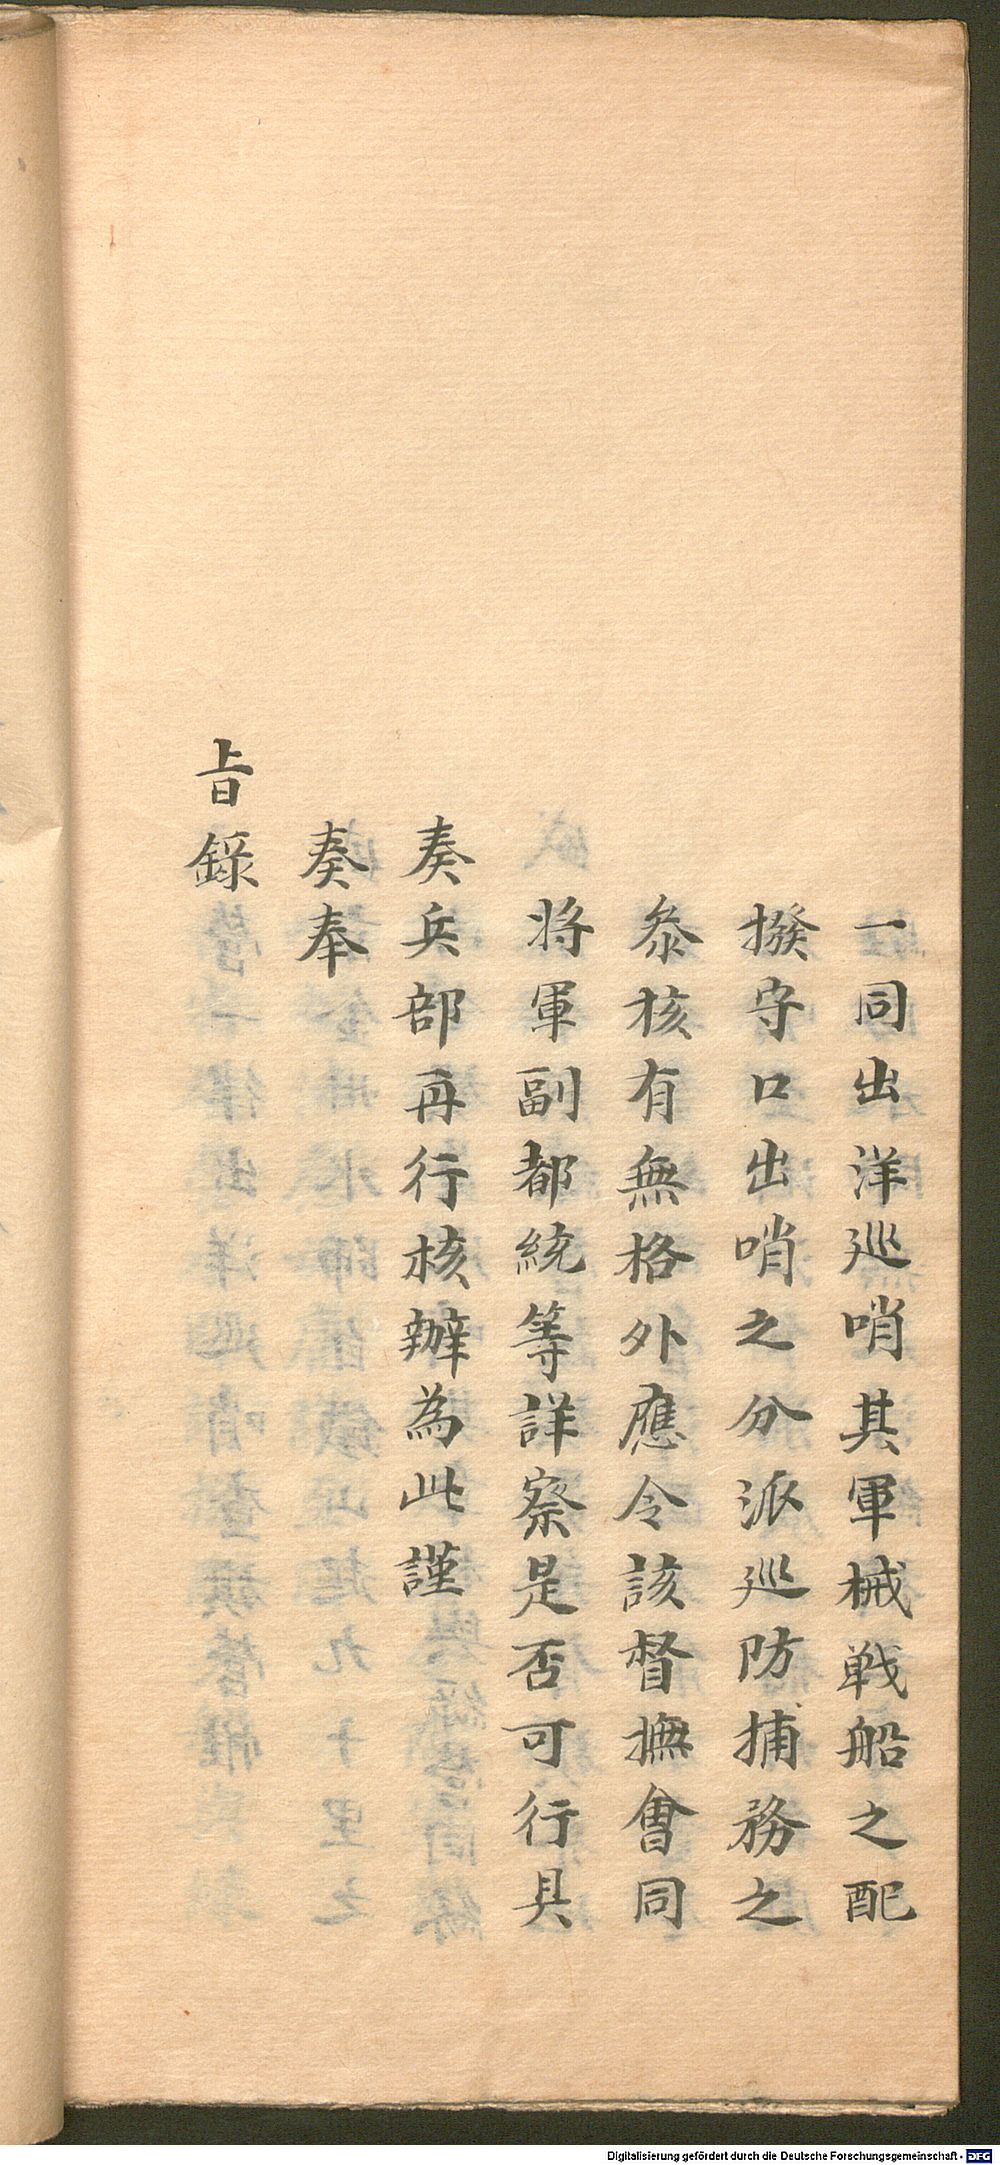 一同出洋巡哨其軍械戦船之配
撥守口出哨之分派巡防捕務之
叅核有無格外應令該督撫會同
將軍副都統等詳察是否可行具
奏兵部再行核辦為此謹
奏奉
旨錄
Digitalisierung gefördert durch die Deutsche Forschungsgemeinschaft - DFG